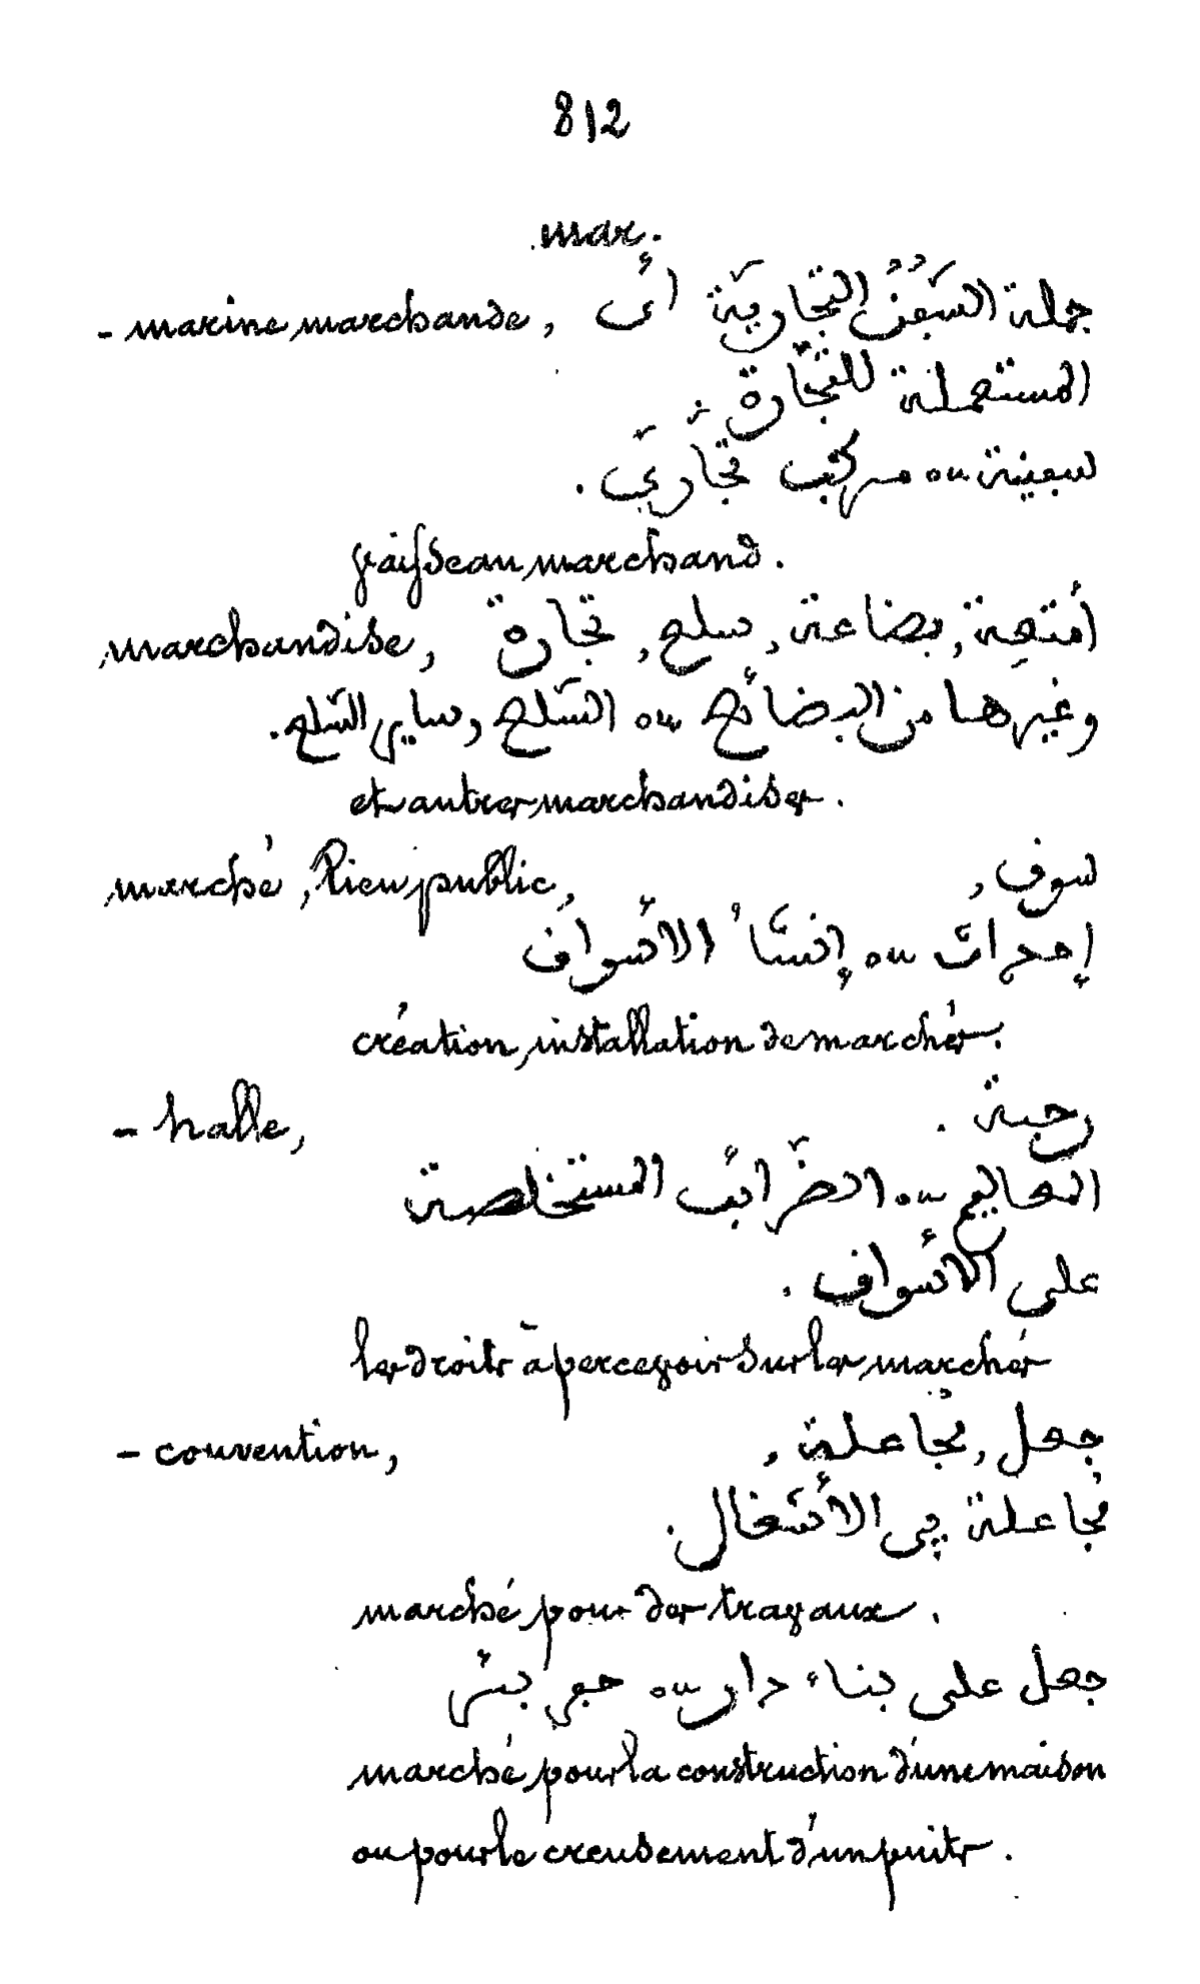 812
mar.
- marine marchande, جملة السُّفُن التِّجَارِيَّة أَىْ
المستعملة للتِّجَارة.
سفينة ou مركب تِجَارِيّ.
vaisseau marchand.
marchandise, أَمْتِعة, بضاعة, سلع, تجارة
وغيرها من البضائع ou السّلع وساير السّلع.
et autres marchandises.
marché, lieu public, سوق,
إحداث ou إنشاءُ الأسواق
création, installation de marchés.
- halle, رحبة.
المعاليم ou الضّرائب المستخلصة
على الأسواق.
les droits à percevoir sur les marchés
- convention, جعل, مُجاعلة,
مُجاعلة في الأشغال.
marché pour des travaux.
جعل على بناء دار ou حفر بئر
marché pour la construction d'une maison
ou pour le creusement d'un puits.